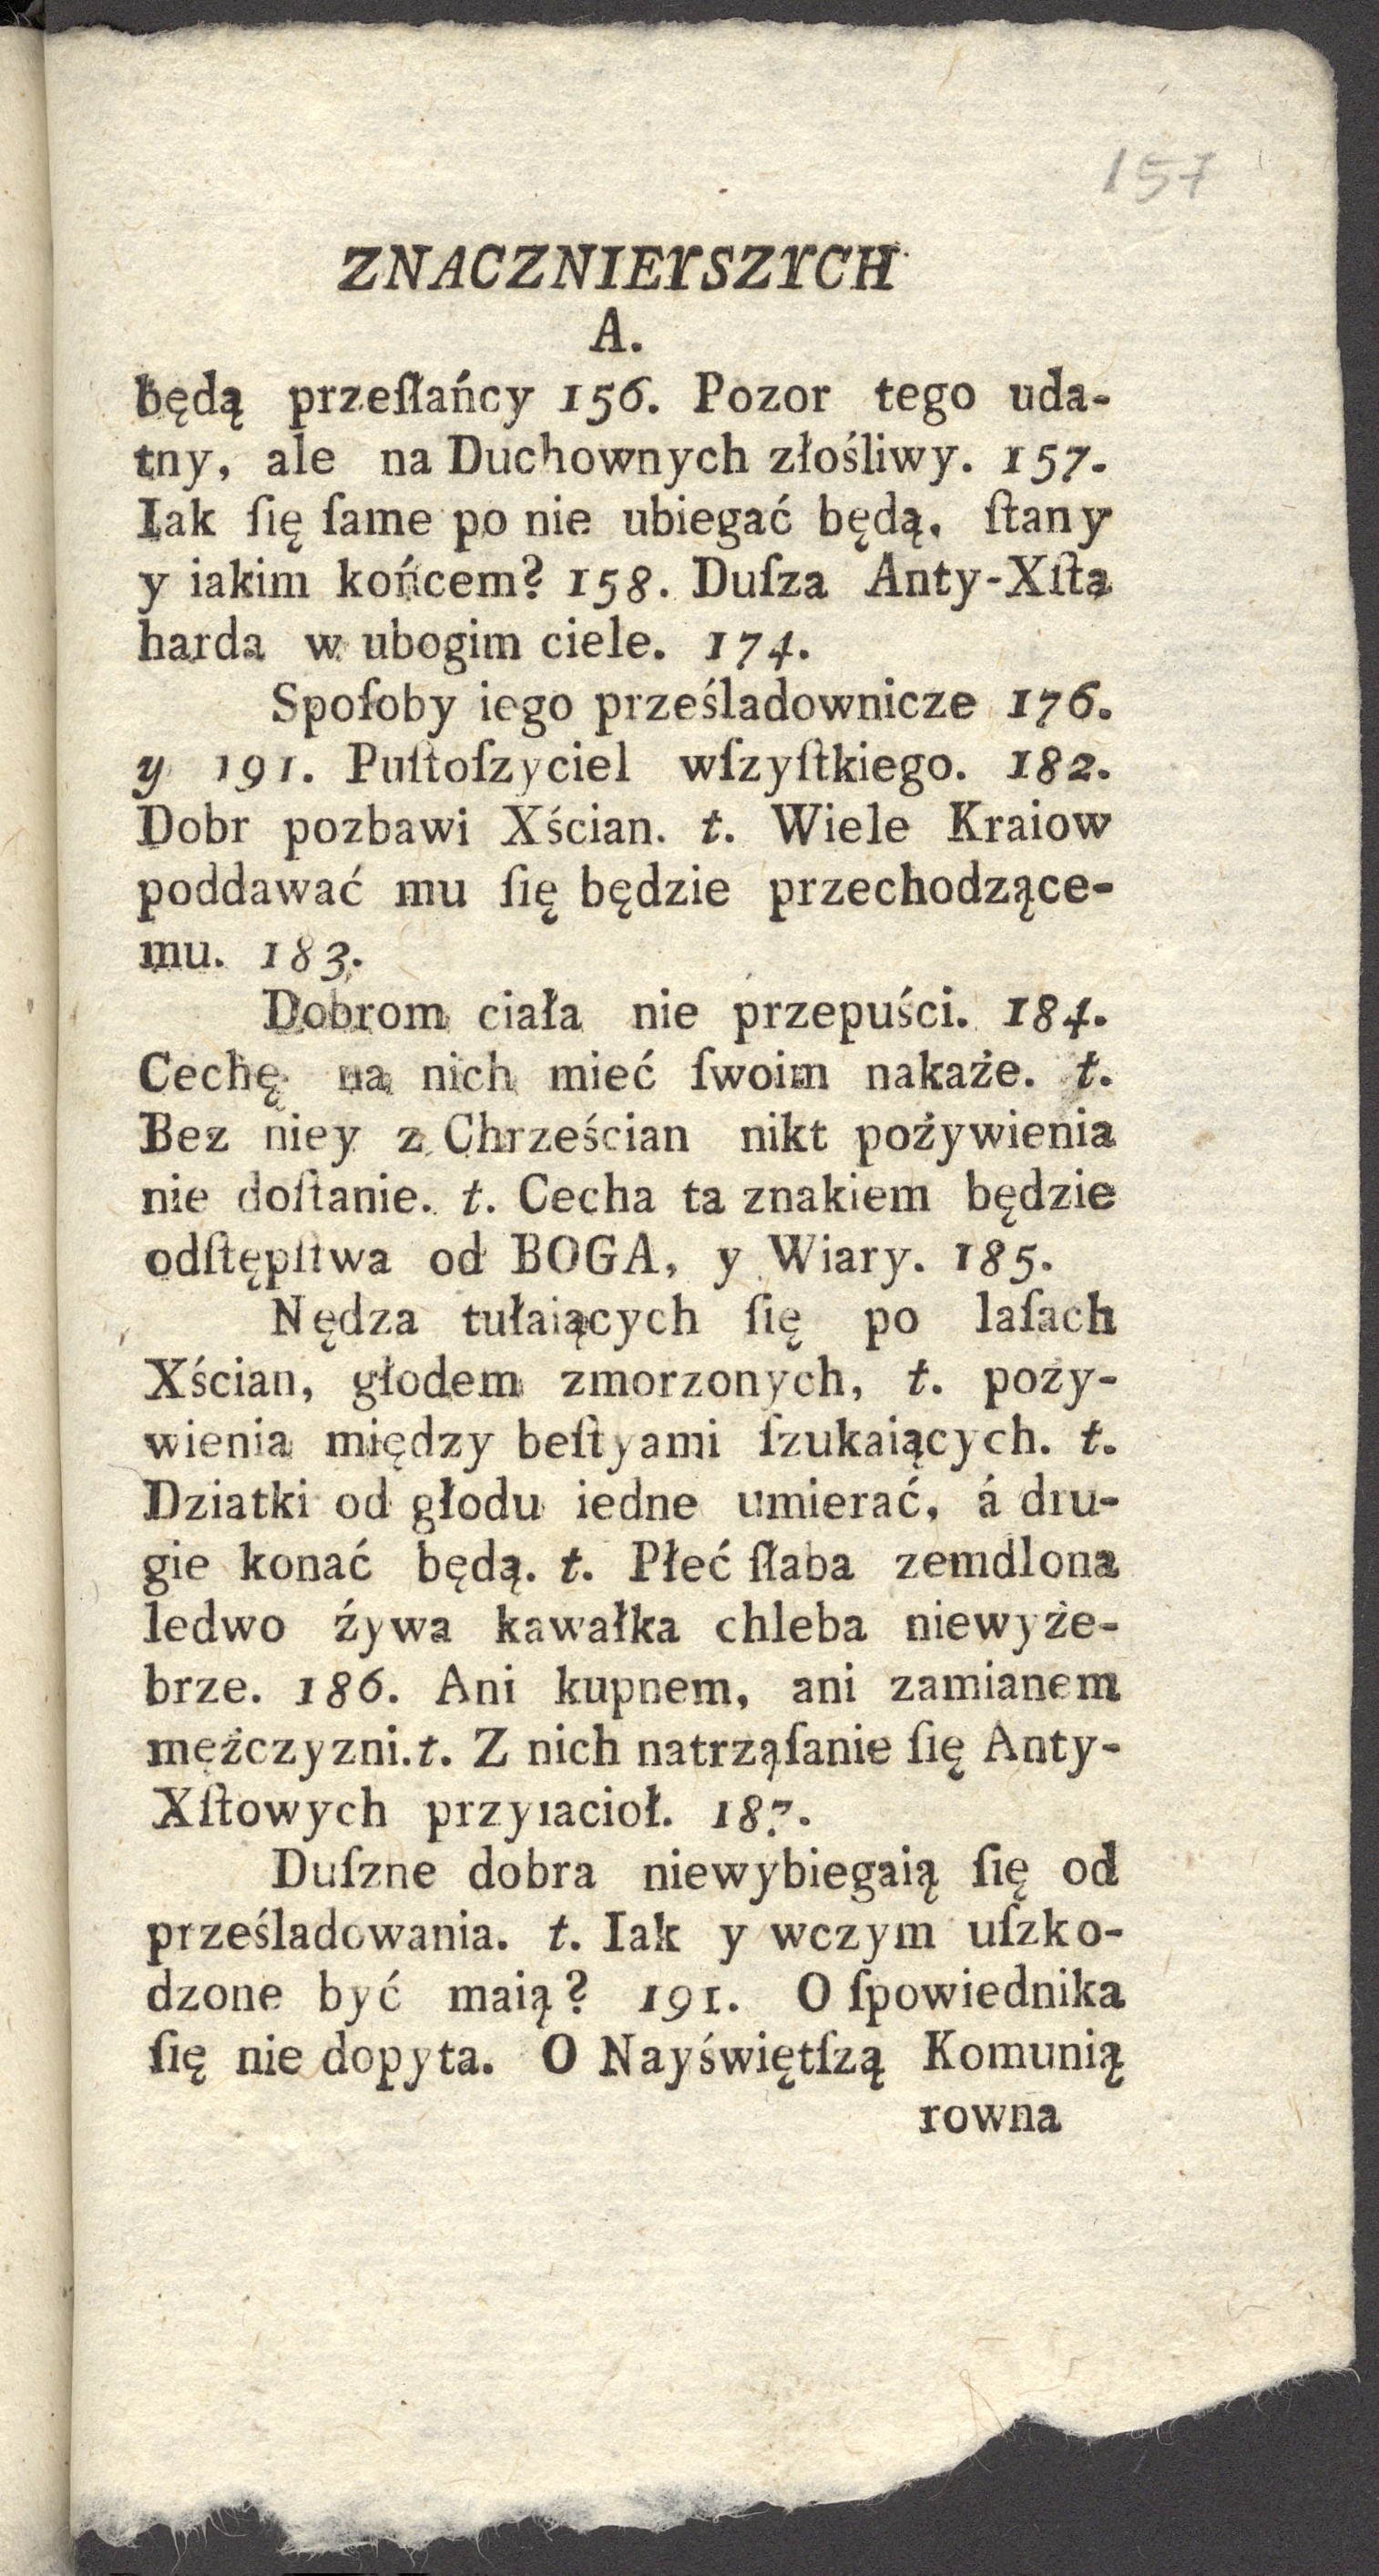 157
ZNACZNIEYSZYCH
A.
będą przeſłańcy 156. Pozor tego uda-
tny, ale na Duchownych złośliwy. 157.
Iak ſię ſame po nie ubiegać będą, ſtany
y iakim końcem? 158. Duſza Anty-Xſta
harda w ubogim ciele. 174.
Spoſoby iego prześladownicze 176.
y 191. Puſtoſzyciel wſzyſtkiego. 182.
Dobr pozbawi Xścian. t. Wiele Kraiow
poddawać mu ſię będzie przechodzące-
mu. 183.
Dobrom ciała nie przepuści. 184.
Cechę na nich mieć ſwoim nakaże. t.
Bez niey z Chrześcian nikt pożywienia
nie doſtanie. t. Cecha ta znakiem będzie
odſtępſtwa od BOGA, y Wiary. 185.
Nędza tułaiących ſię po laſach
Xścian, głodem zmorzonych, t. poży-
wienia między beſtyami ſzukaiących. t.
Dziatki od głodu iedne umierać, á dru-
gie konać będą. t. Płeć ſłaba zemdlona
ledwo źywa kawałka chleba niewyże-
brze. 186. Ani kupnem, ani zamianem
mężczyzni. t. Z nich natrząſanie ſię Anty-
Xſtowych przyiacioł. 187.
Duſzne dobra niewybiegaią ſię od
prześladowania. t. Iak y wczym uſzko-
dzone być maią? 191. O ſpowiednika
ſię nie dopyta. O Nayświętſzą Komunią
rowna